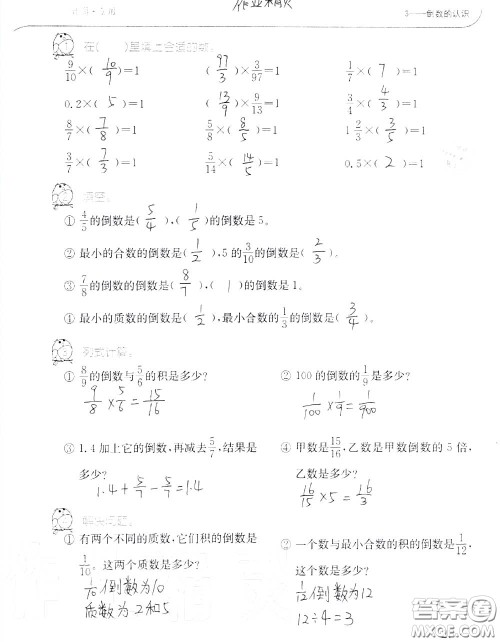 作业精灵
3——倒数的认识
1 在( )里填上合适的数。
9/10×( 10/9 )=1 ( 97/3 )×3/97=1 1/7×( 7 )=1
0.2×( 5 )=1 ( 13/9 )×9/13=1 3/4×( 4/3 )=1
8/7×( 7/8 )=1 5/8×( 8/5 )=1 1 2/3×( 3/5 )=1
3/7×( 7/3 )=1 5/14×( 14/5 )=1 0.5×( 2 )=1
2 填空。
① 4/5的倒数是( 5/4 ),( 1/5 )的倒数是5。
② 最小的合数的倒数是( 1/2 ),5的3/10的倒数是( 2/3 )。
③ 7/8的倒数的倒数是( 8/7 ),( 1 )的倒数是1。
④ 最小的质数的倒数是( 1/2 ),最小合数的1/3的倒数是( 3/4 )。
3 列式计算。
① 8/9的倒数与5/6的积是多少? ② 100的倒数的1/9是多少?
9/8×5/6=15/16 1/100×1/9=1/900
③ 1.4加上它的倒数,再减去5/7,结果是 ④ 甲数是15/16,乙数是甲数倒数的5倍,
多少? 乙数是多少?
1.4+5/7-5/7=1.4 16/15×5=16/3
解决问题。
① 有两个不同的质数,它们积的倒数是 ② 一个数与最小合数的积的倒数是1/12,
1/10,这两个质数是多少? 这个数是多少?
1/10倒数为10 1/12倒数为12
质数为2和5 12÷4=3
答案圈
MXQE.COM